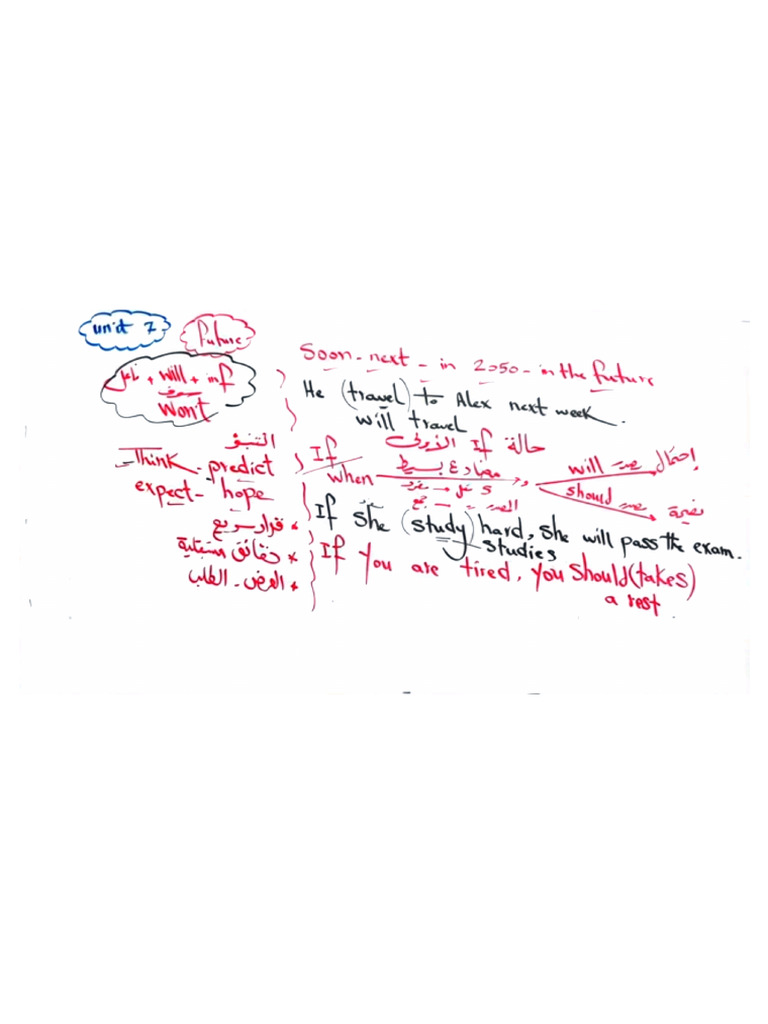 unit 7
future
فاعل + will + inf
مصدر
won't
التنبؤ
Think - predict
expect - hope
* قرار سريع
* حقائق مستقبلية
* العرض - الطلب
Soon - next - in 2050 - in the future
He (travel) to Alex next week.
will travel
حالة If الأولى
If
when
مضارع بسيط
will مصدر احتمال
should مصدر نصيحة
If she (study) hard, she will pass the exam.
studies
If you are tired, you should (takes)
a rest